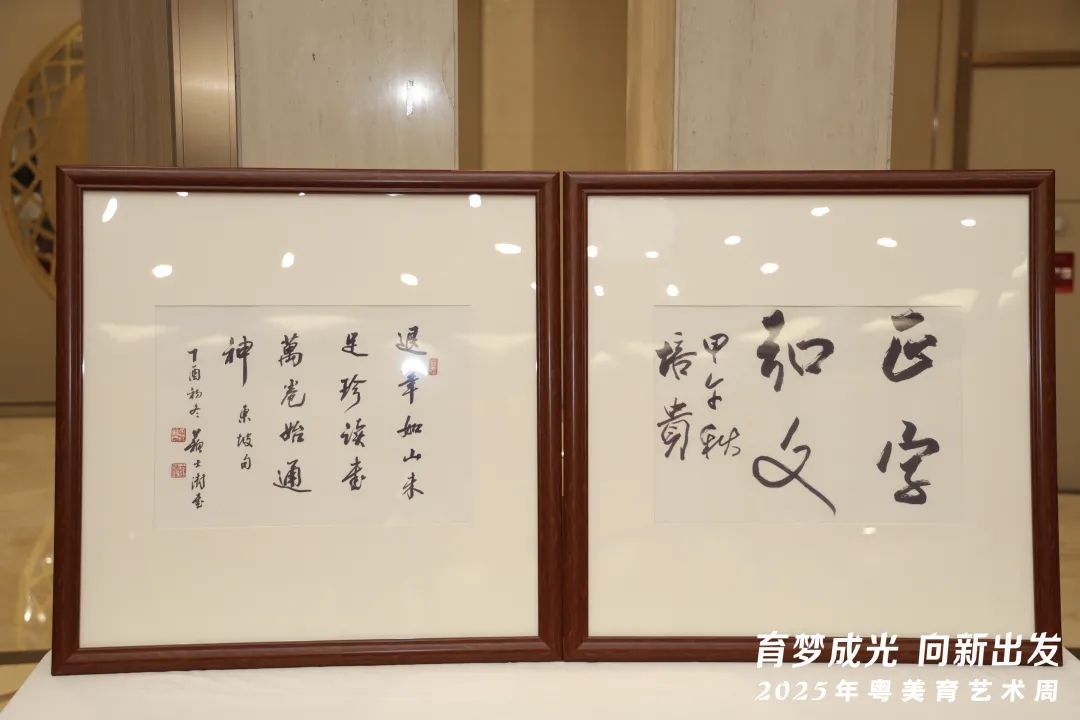 退筆如山未
足珍讀書
萬卷始通
神
東坡句
丁酉初冬 蘇士澍書
正字
弘文
甲午秋
培貴
育梦成光 向新出发
2025年粤美育艺术周